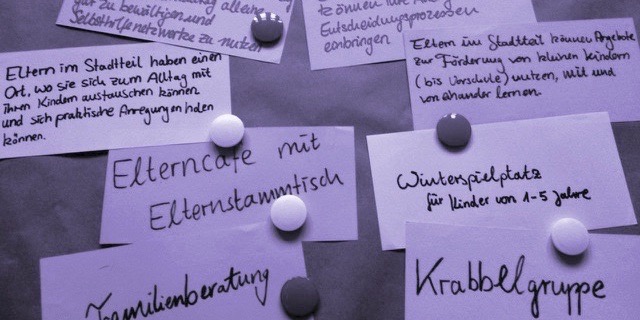 allein
gut zu bewältigen und
Selbsthilfenetzwerke zu nutzen
können ihre
Entscheidungsprozessen
einbringen
Eltern im Stadtteil können Angebote
zur Förderung von kleinen Kindern
(bis Vorschule) nutzen, mit und
voneinander lernen.
Eltern im Stadtteil haben einen
Ort, wo sie sich zum Alltag mit
ihren Kindern austauschen können
und sich praktische Anregungen holen
können.
Elterncafe mit
Elternstammtisch
Winterspielplatz
für Kinder von 1-5 Jahre
Familienberatung
Krabbelgruppe